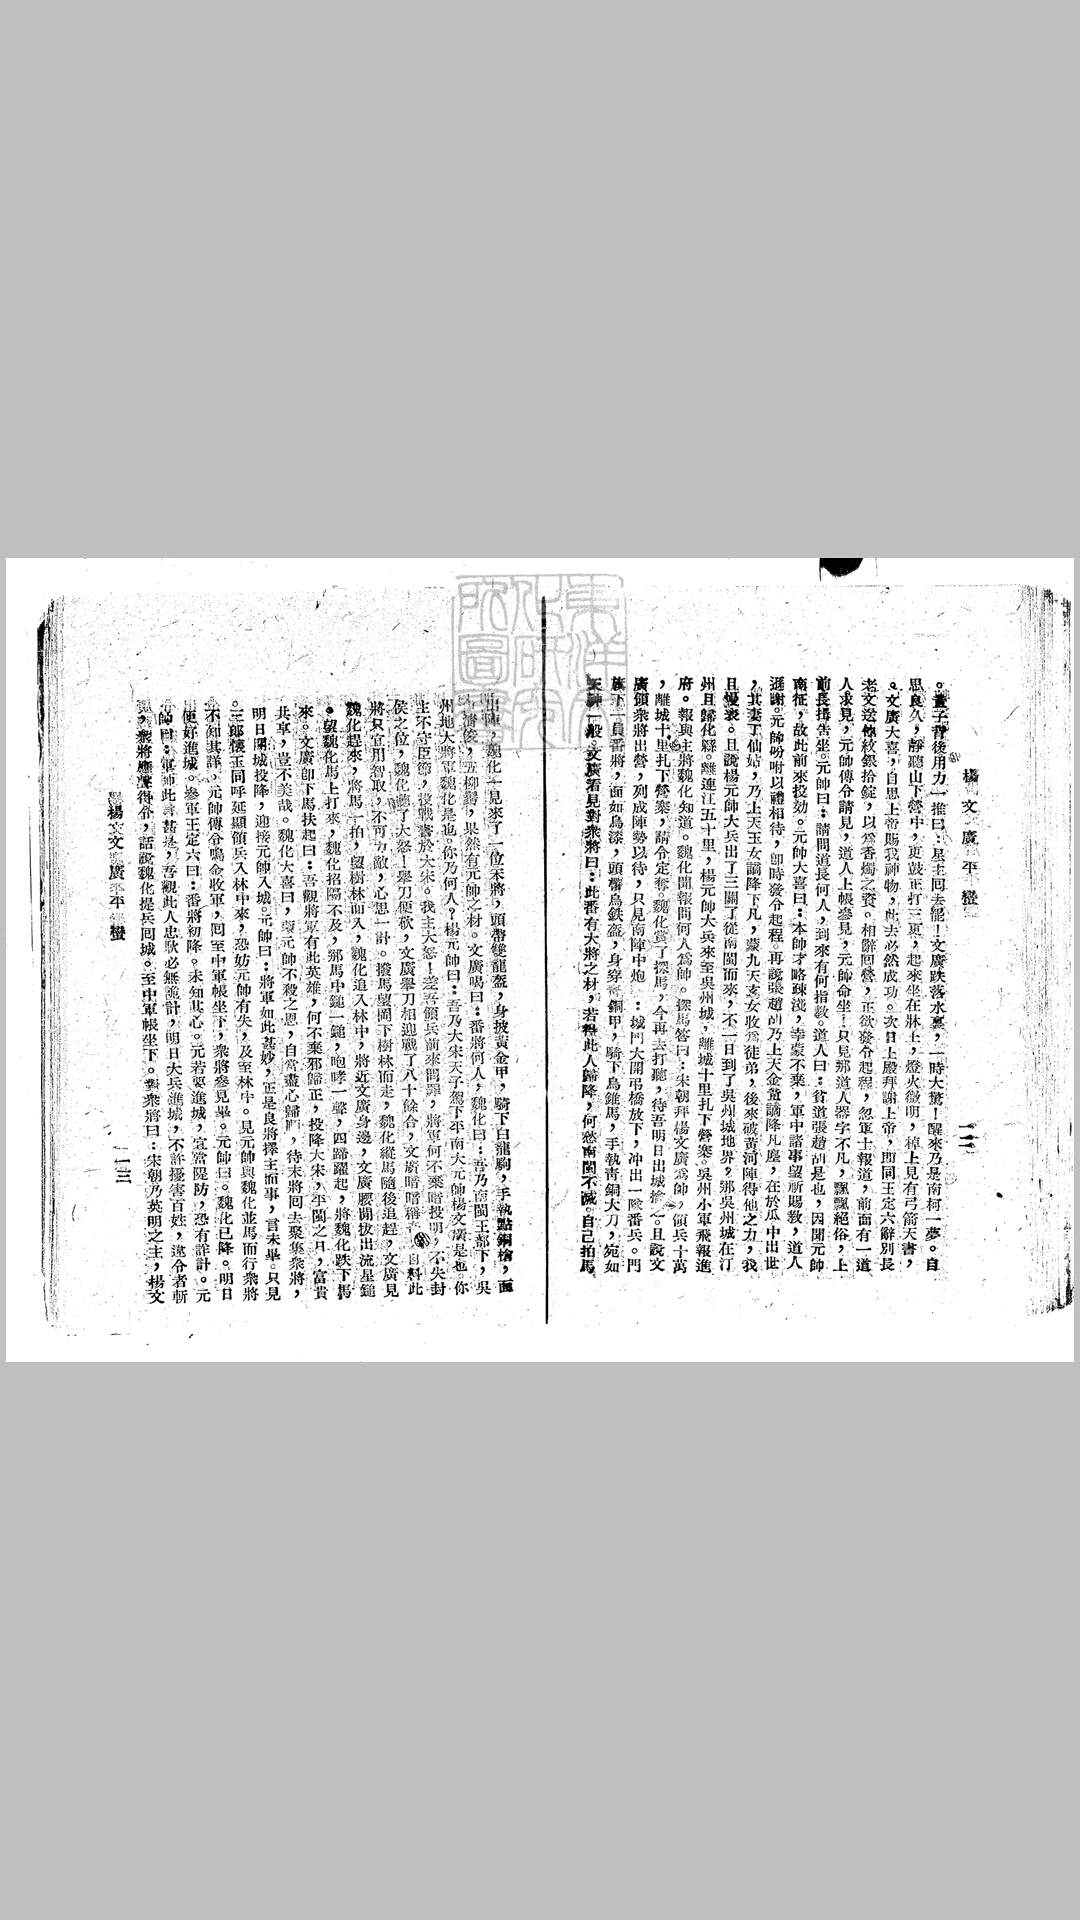 楊文廣平蠻
二二
。童子背後用力一推曰：星主囘去罷！文廣跌落水裏，一時大驚！醒來乃是南柯一夢。自
思良久，靜聽山下營中，更鼓正打三更，起來坐在牀上，燈火微明，棹上見有弓箭天書，
。文廣大喜，自思上帝賜我神物，此去必然成功。次日上殿拜謝上帝，卽同王定六辭別長
老文送他紋銀拾錠，以爲香燭之資。相辭囘營，正欲發令起程，忽軍士報道，前面有一道
人求見，元帥傳令請見，道人上帳叅見，元帥命坐！只見那道人器宇不凡，飄飄絕俗，上
前長揖告坐。元帥曰：請問道長何人，到來有何指教。道人曰：貧道張趙胡是也，因聞元帥
南征，故此前來投効。元帥大喜曰：本帥才略疎淺，幸蒙不棄，軍中諸事望祈賜敎，道人
遜謝。元帥吩咐以禮相待，卽時發令起程。再說張趙胡乃上天金童謫降凡塵，在於瓜中出世
，其妻丁仙姑，乃上天玉女謫降下凡，蒙九天玄女收爲徒弟，後來破黃河陣得他之力，我
且慢表。且說楊元帥大兵出了三關了從南閩而來，不一日到了吳州城地界，那吳州城在汀
州且歸化縣。離連江五十里，楊元帥大兵來至吳州城，離城十里扎下營寨。吳州小軍飛報進
府。報與主將魏化知道。魏化聞報問何人爲帥。探馬答曰：宋朝拜楊文廣爲帥，領兵十萬
，離城十里扎下營寨，請令定奪。魏化賞了探馬，今再去打聽，待吾明日出城擒之。且說文
廣領衆將出營，列成陣勢以待，只見南陣中炮：城門大開弔橋放下，冲出一隊番兵。門
旗下一員番將，面如烏漆，頭帶烏鉄盔，身穿靑銅甲，騎下烏錐馬，手執靑銅大刀，宛如
天神一般。文廣看見對衆將曰：此番有大將之材，若得此人歸降，何愁南閩不滅。自己拍馬
出陣，魏化一見來了一位宋將，頭帶雙龍盔，身披黃金甲，騎下白龍駒，手執點銅槍，面
淸俊，五柳鬚，果然有元帥之材。文廣喝曰：番將何人，魏化曰：吾乃南閩王部下，吳
州地大將軍魏化是也。你乃何人？楊元帥曰：吾乃大宋天子駕下平南大元帥楊文廣是也。你
主不守臣節，後戰書於大宋。我主大怒！差吾領兵前來問罪，將軍何不棄暗投明，不失封
侯之位，魏化聽了大怒！舉刀便砍，文廣舉刀相迎戰了八十餘合，文廣暗暗稱奇，自料此
將只宜用智取，不可力敵，心思一計。撥馬望閩下樹林而走，魏化縱馬隨後追趕，文廣見
魏化趕來，將馬一拍，望樹林而入，魏化追入林中，將近文廣身邊，文廣腰間拔出流星鎚
。望魏化馬上打來，魏化招隔不及，那馬中鎚一鎚，咆哮一聲，四蹄躍起，將魏化跌下馬
來。文廣卽下馬扶起曰：吾觀將軍有此英雄，何不棄邪歸正，投降大宋，平閩之日，富貴
共享，豈不美哉。魏化大喜曰，蒙元帥不殺之恩，自當盡心歸順，待末將囘去聚集衆將，
明日開城投降，迎接元帥入城。元帥曰：將軍如此甚妙，正是良將擇主而事，言未畢。只見
三郎懷玉同呼延顯領兵入林中來，恐妨元帥有失，及至林中。見元帥與魏化並馬而行衆將
不知其詳，元帥傳令鳴金收軍，囘至中軍帳坐下，衆將叅見畢。元帥曰。魏化已降。明日
便好進城。叅軍王定六曰：番將初降。未知其心。元若要進城，宜當隄防，恐有詐計。元
帥曰：軍師此言甚是，吾觀此人忠耿必無詭計，明日大兵進城，不許擾害百姓，違令者斬
，衆將應聲得令，話說魏化提兵囘城。至中軍帳坐下。對衆將曰：宋朝乃英明之主，楊文
楊文廣平蠻
二三